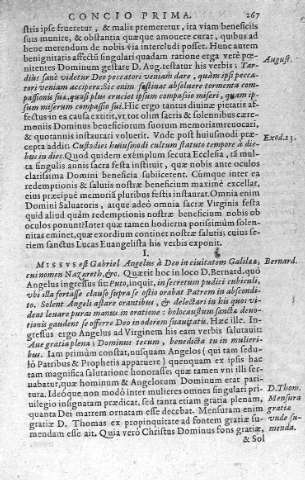 CONCIO PRIMA. 267
stis ipse frueretur, & malis premeretur, ita viam beneficiis
suis munire, & obstantia quæque amouere curar, quibus ad
bene merendum de nobis via intercludi posset. Hunc autem
benignitatis affectū singulari quadam ratione erga verè pœ-
nitentes Dominum gestare D. Aug. testatur his verbis: Tar-
dius sanè videtur Deo peccatori veniam dare, quàm ipsi pecca-
tori veniam accipere. Sic enim festinat absoluere tormenta com-
passionis suæ, quasi plus cruciet ipsum compassio miseri, quam ip-
sum miserum compassio sui. Hic ergo tantus diuinæ pietatis af-
fectus in ea causa extitit, vt tot olim sacris & solennibus cære-
moniis Diuinis beneficiorum suorum memoriam reuocari,
& quotannis instaurari voluerit. Vnde post huiusmodi præ-
cepta addit: Custodies huiusmodi cultum statuto tempore à die-
bus in dies. Quod quidem exemplum secuta Ecclesia, id mul-
ta singulis annis sacra festa instituit, quæ nobis ante oculos
clarissima Domini beneficia subiicerent. Cúmque inter ea
redemptionis & salutis nostræ beneficium maximè excellat,
eius præcipuè memoriã pluribus festis instaurat. Omnia enim
Domini Saluatoris, atque adeò omnia sacræ Virginis festa
quid aliud quàm redemptionis nostræ beneficium nobis ob
oculos ponunt? Inter quæ tamen hodierna potissimùm solen-
nitas eminet, quæ exordium continet nostræ salutis; cuius se-
riem sanctus Lucas Euangelista his verbis exponit.
I.
MISSVS est Gabriel Angelus à Deo in ciuitatem Galilææ,
cui nomen Nazareth, &c. Quærit hoc in loco D. Bernard. quò
Angelus ingressus sit: Puto, inquit, in secretum pudici cubiculi,
vbi illa fortasse clauso supra se ostio orabat Patrem in abscondi-
to. Solent Angeli astare orantibus, & delectari in his quos vi-
dent leuare puras manus in oratione: holocaustum sanctæ deuo-
tionis gaudent se offerre Deo in odorem suauitatis. Hæc ille. In-
gressus ergo Angelus ad Virginem his eam verbis salutauit:
Aue gratia plena: Dominus tecum, benedicta tu in mulieri-
bus. Iam primùm constat, nusquam Angelos (qui tam sæpe
Patribus & Prophetis apparuere) quenquam ex ipsis hac
tam magnifica salutatione honorasse: quæ tamen vni illi ser-
uabatur, quæ hominum & Angelorum Dominum erat pari-
tura. Ideóque non modò inter mulieres omnes singulari pri-
uilegio insignatam prædicat, sed tanta etiam gratia plenam,
quanta Dei matrem ornatam esse decebat. Mensuram enim
gratiæ D. Thomas ex propinquitate ad fontem gratiæ su-
mendam esse ait. Quia verò Christus Dominus fons gratiæ,
& Sol
August.
Exod. 23.
Bernard.
D. Thom.
Mensura
gratiæ
vnde su-
menda.